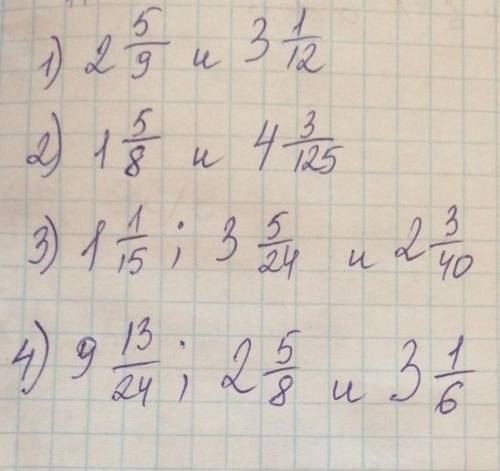 1) 2 5/9 и 3 1/12
2) 1 5/8 и 4 3/125
3) 1 1/15 ; 3 5/24 и 2 3/40
4) 9 13/24 ; 2 5/8 и 3 1/6